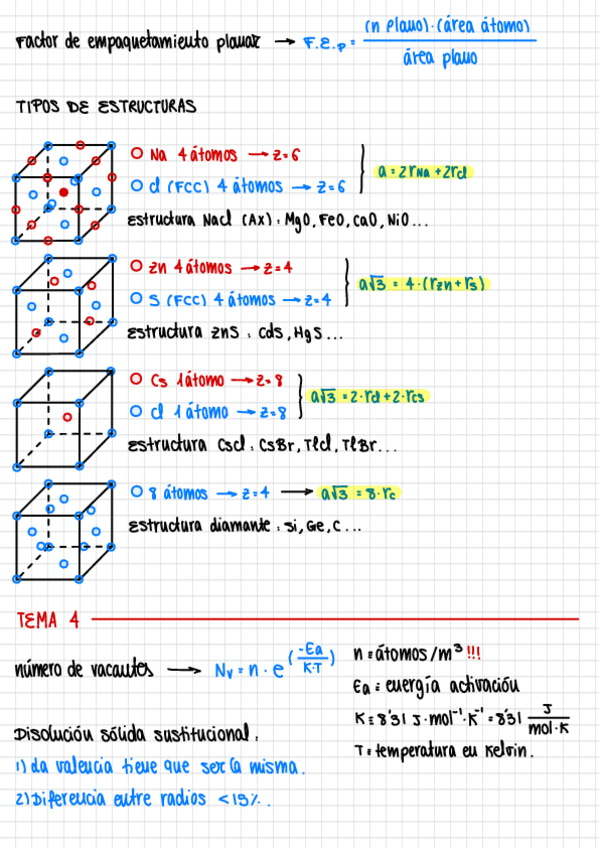 Factor de empaquetamiento planar → F.E.p = (n plano)·(área átomo) / área plano
TIPOS DE ESTRUCTURAS
Na 4 átomos → z=6
Cl (FCC) 4 átomos → z=6
a = 2rNa + 2rCl
Estructura NaCl (AX): MgO, FeO, CaO, NiO...
Zn 4 átomos → z=4
S (FCC) 4 átomos → z=4
a√3 = 4·(rZn + rS)
Estructura ZnS: CdS, HgS...
Cs 1 átomo → z=8
Cl 1 átomo → z=8
a√3 = 2·rCl + 2·rCs
Estructura CsCl: CsBr, TlCl, TlBr...
8 átomos → z=4 → a√3 = 8·rC
Estructura diamante: Si, Ge, C...
TEMA 4
número de vacantes → Nv = n·e^(-Ea/K·T)
n = átomos/m³ !!!
Ea = energía activación
K = 8'31 J·mol⁻¹·K⁻¹ = 8'31 J/mol·K
T = temperatura en Kelvin.
Disolución sólida sustitucional:
1) La valencia tiene que ser la misma.
2) Diferencia entre radios <15%.